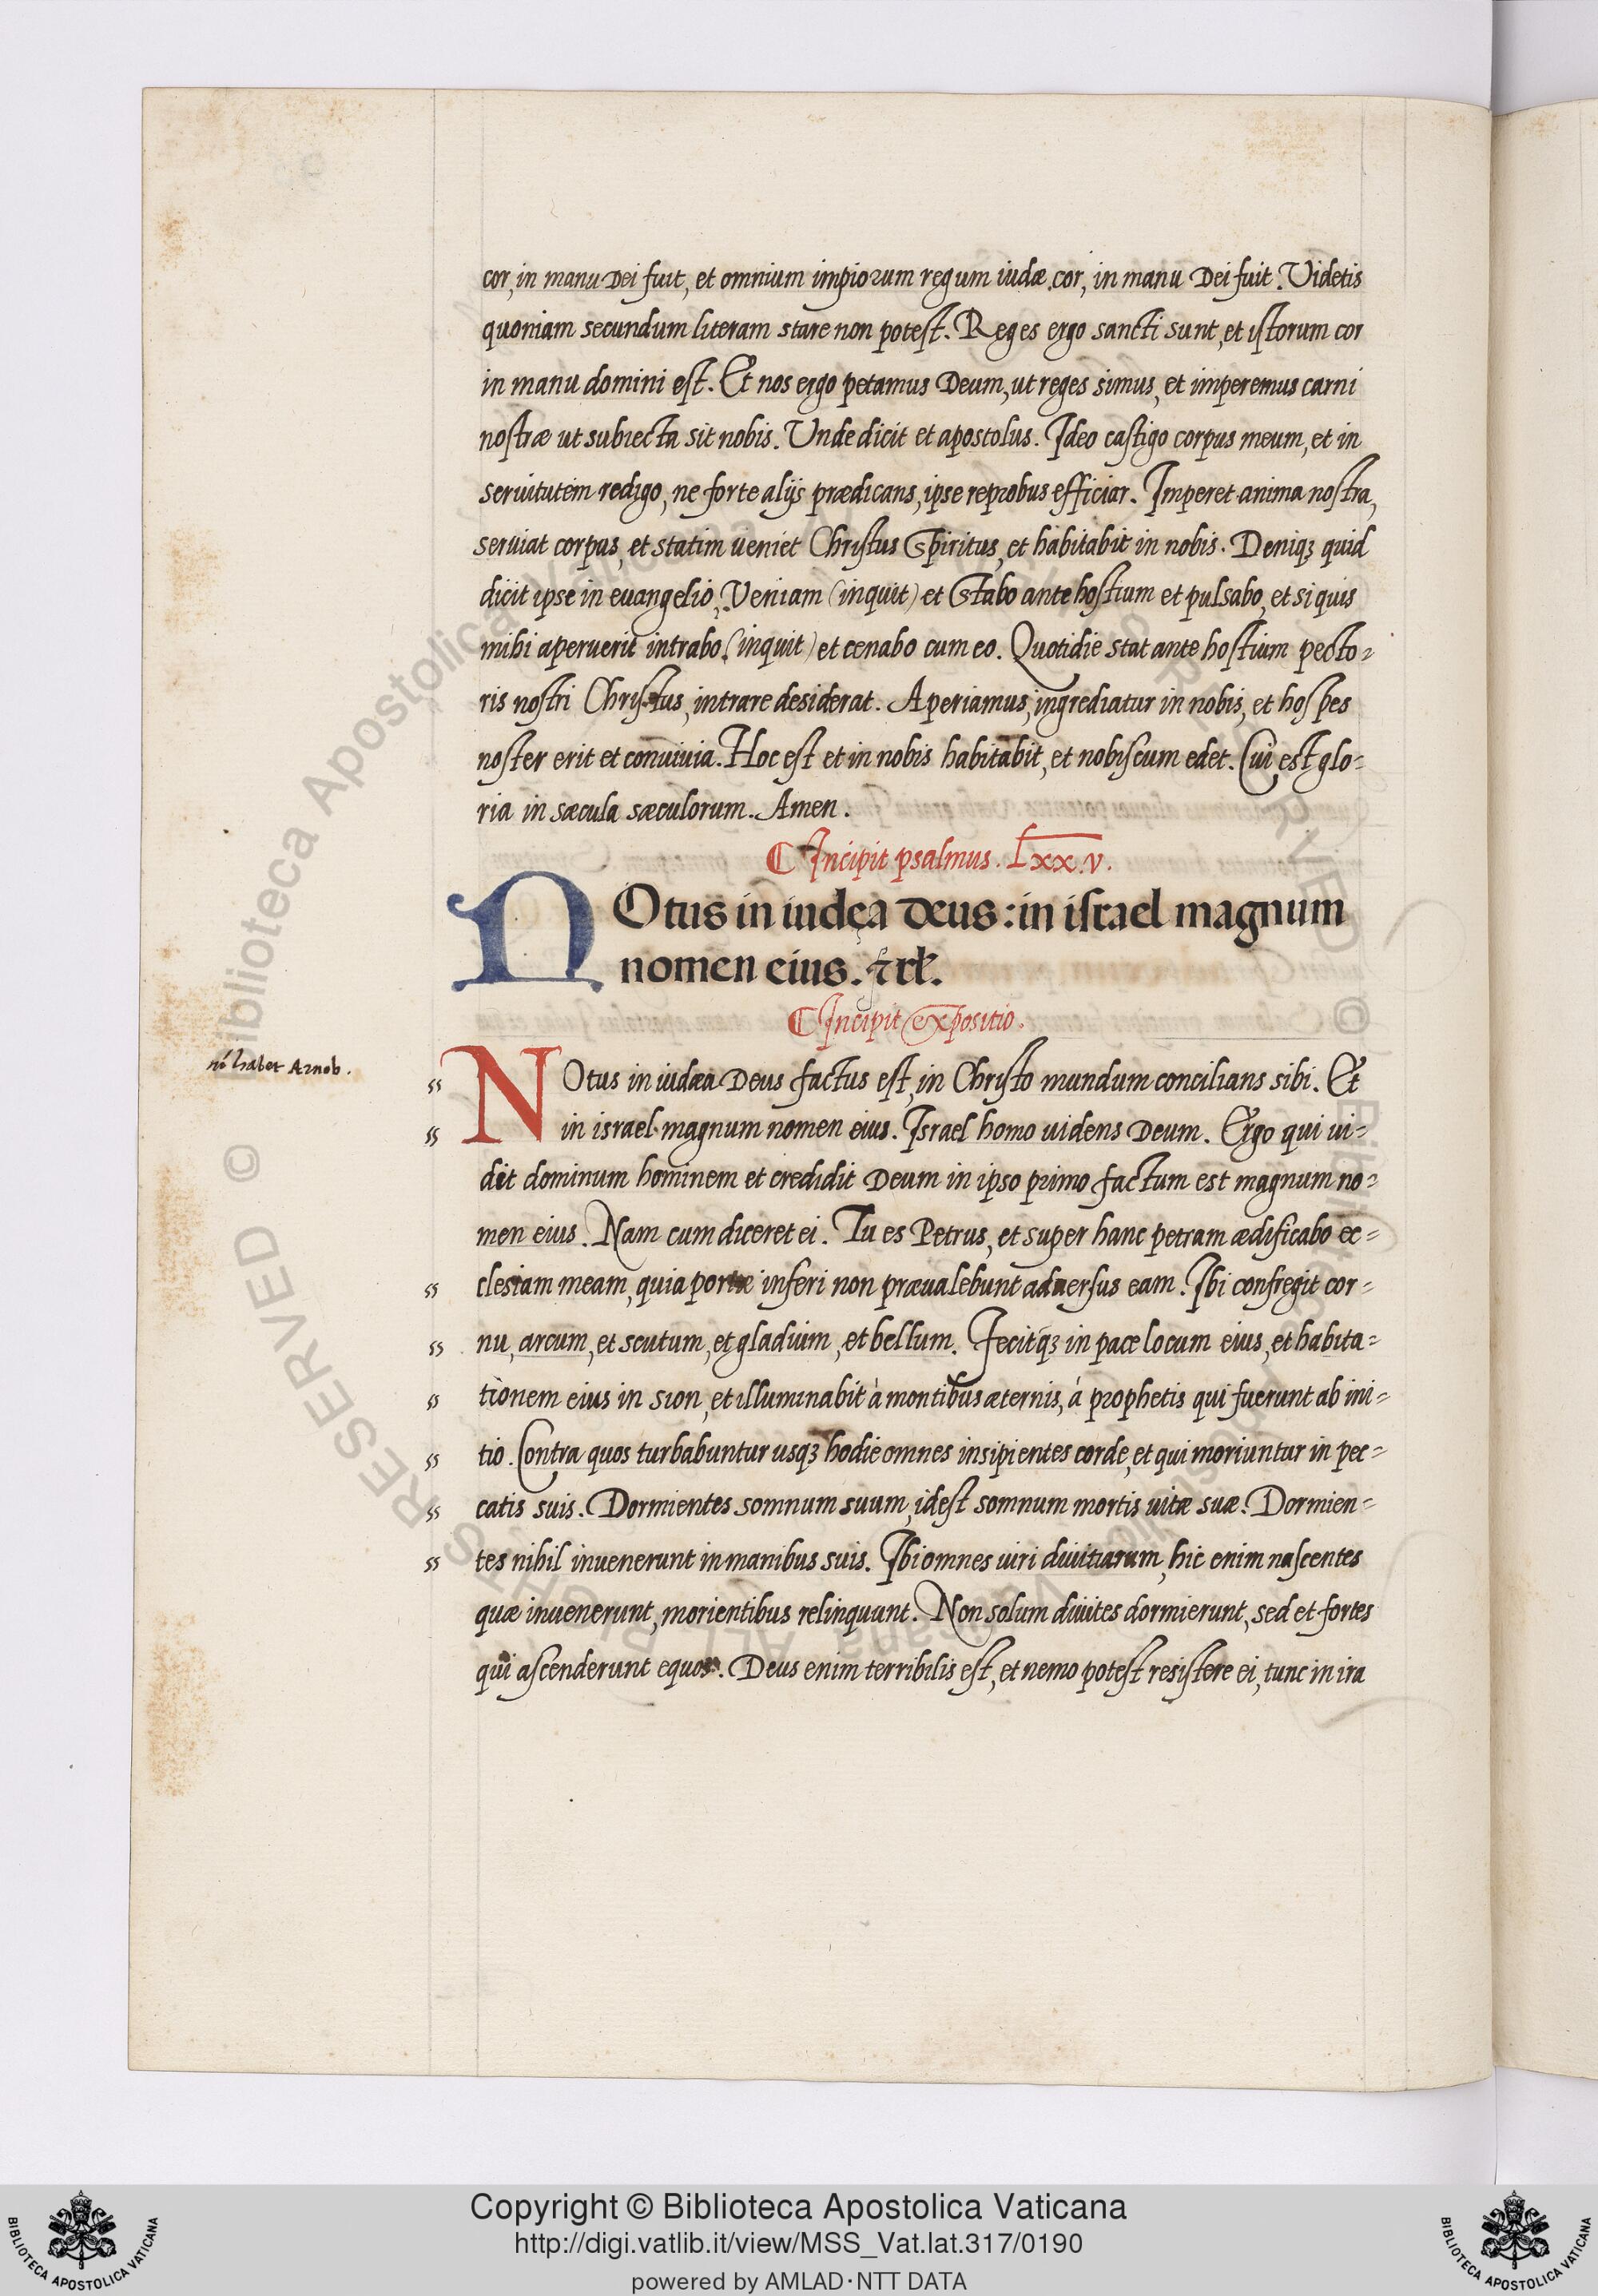 cor, in manu Dei fuit, et omnium impiorum regum iudæ cor, in manu Dei fuit. Videtis
quoniam secundum literam stare non potest. Reges ergo sancti sunt, et istorum cor
in manu domini est. Et nos ergo petamus Deum, ut reges simus, et imperemus carni
nostræ ut subiecta sit nobis. Unde dicit et apostolus. Ideo castigo corpus meum, et in
seruitutem redigo, ne forte alijs prædicans, ipse reprobus efficiar. Imperet anima nostra,
seruiat corpus, et statim ueniet Christus Spiritus, et habitabit in nobis. Deniqꝫ quid
dicit ipse in euangelio, Veniam (inquit) et Stabo ante hostium et pulsabo, et si quis
mihi aperuerit intrabo (inquit) et cenabo cum eo. Quotidie stat ante hostium pecto-
ris nostri Christus, intrare desiderat. Aperiamus, ingrediatur in nobis, et hospes
noster erit et conuiuia. Hoc est et in nobis habitabit, et nobiscum edet. Cui est glo-
ria in sæcula sæculorum. Amen.
Incipit psalmus. Lxx.v.
NOtus in iudęa deus: in israel magnum
nomen eius.
Incipit expositio.
habet Arnob.
NOtus in iudæa Deus factus est, in Christo mundum concilians sibi. Et
in israel magnum nomen eius. Israel homo uidens Deum. Ergo qui ui-
dit dominum hominem et credidit Deum in ipso primo factum est magnum no-
men eius. Nam cum diceret ei. Tu es Petrus, et super hanc petram ædificabo ec-
clesiam meam, quia portæ inferi non præualebunt aduersus eam. Ibi confregit cor-
nu, arcum, et scutum, et gladium, et bellum. Fecitqꝫ in pace locum eius, et habita-
tionem eius in sion, et illuminabit à montibus æternis, à prophetis qui fuerunt ab ini-
tio. Contra quos turbabuntur usqꝫ hodie omnes insipientes corde, et qui moriuntur in pec-
catis suis. Dormientes somnum suum, idest somnum mortis uitæ suæ. Dormien-
tes nihil inuenerunt in manibus suis. Ibi omnes uiri diuitiarum, hic enim nascentes
quæ inuenerunt, morientibus relinquunt. Non solum diuites dormierunt, sed et fortes
qui ascenderunt equos. Deus enim terribilis est, et nemo potest resistere ei, tunc in ira
Copyright © Biblioteca Apostolica Vaticana
http://digi.vatlib.it/view/MSS_Vat.lat.317/0190
powered by AMLAD·NTT DATA